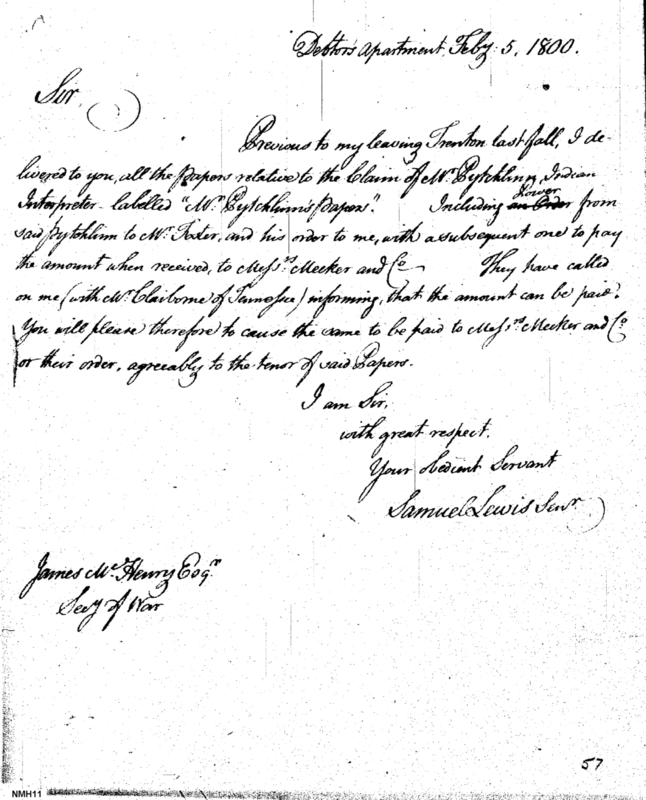 Debtor's Apartment, Feby. 5, 1800.
Sir,
Previous to my leaving Trenton last fall, I de-
livered to you, all the Papers relative to the Claim of Mr. Pytchlinn, Indian
Interpreter - labelled "Mr. Pytchlinn's papers".     Including an Order Power from
said Pytchlinn to Mr. Foster, and his order to me, with a subsequent one to pay
the amount when received, to Messrs. Meeker and Co.     They have called
on me (with Mr. Claiborne of Tennessee) informing, that the amount can be paid.
You will please therefore to cause the same to be paid to Messrs. Meeker and Co.
or their order, agreeably to the tenor of said Papers.
I am Sir,
with great respect,
Your obedient Servant
Samuel Lewis Senr.
James McHenry Esqr.
Secy of War
57
NMH11